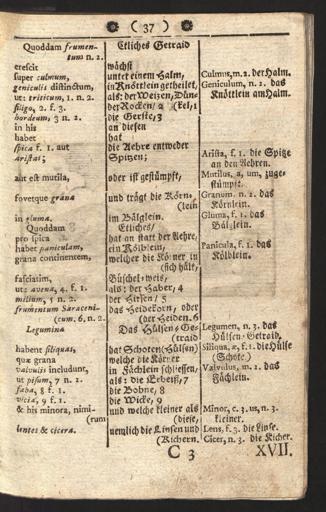 ( 37 )
Quoddam frumen-
tum n. 2.
crescit
super culmum,
geniculis distinctum,
ut: triticum, 1. n. 2.
siligo, 2. f. 3.
hordeum, 3 n. 2.
in his
habet
spica f. 1. aut
aristas;
aut est mutila,
fovetque grana
in gluma.
Quoddam
pro spica
habet paniculam,
grana continentem,
fasciatim,
ut: avena, 4. f. 1.
milium, 5 n. 2.
frumentum Saraceni-
(cum. 6. n. 2.
Legumina
habent siliquas,
quæ grana
valvulis includunt,
ut pisum, 7 n. 2.
faba, 8 f. 1.
vicia, 9 f. 1.
& his minora, nimi-
(rum
lentes & cicera.
Etliches Getraid
wächst
untet einem Halm,
in Knöttlein getheilet,
als: der Weitzen, Dün-
der Rocken/ 2 (kel, 1
die Gerste, 3
an diesen
hat
die Aehre entweder
Spitzen;
oder ist gestümpft,
und trägt die Körn-
(lein
im Bälglein.
Etliches/
hat an statt der Aehre,
ein Kölblein,
welcher die Körner in
(sich hält,
Büschel-weis,
als: der Haber, 4
der Hirsen/ 5
das Heidekorn, oder
(der Heiden, 6
Das Hülsen-Ge-
(traid
hat Schoten (Hülsen)
welche die Körner
in Fächlein schliessen,
als: die Erbeis, 7
die Bohne, 8
die Wicke, 9
und welche kleiner als
(diese,
nemlich die Linsen und
(Kichern.
Culmus, m. 2. der Halm.
Geniculum, n. 2. das
Knöttlein am Halm.
Arista, f. 1. die Spitze
an den Aehren.
Mutilus, a, um, zuge-
stümpft.
Granum, n. 2. das
Körnlein.
Gluma, f. 1. das
Bälglein.
Panicula, f. 1. das
Kölblein.
Legumen, n. 3. das
Hülsen-Getraid.
Siliqua, æ, f. 1. die Hülse
(Schote.)
Valvulus, m. 2. das
Fächlein.
Minor, c. 3. us, n. 3.
kleiner.
Lens, f. 3. die Linse.
Cicer, n. 3. die Kicher.
C 3
XVII.